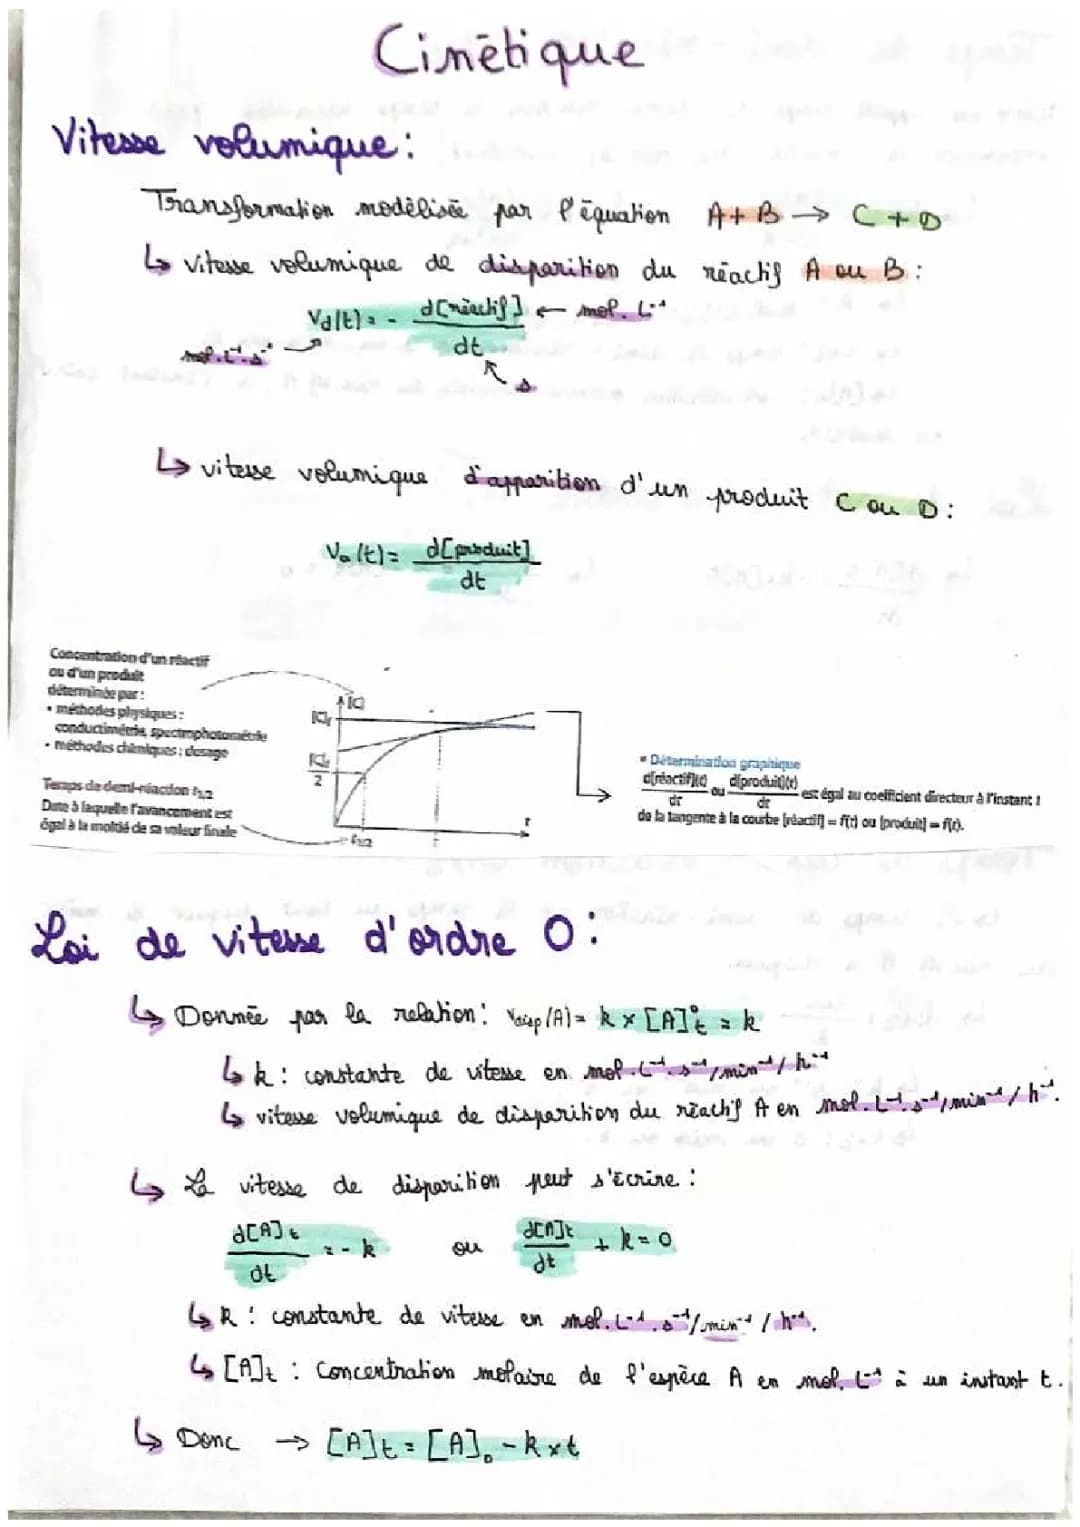 Cinétique
Vitesse volumique :
Transformation modélisée par l'équation A + B → C + D
↳ vitesse volumique de disparition du réactif A ou B :
Vd(t) = - d[réactif] / dt ← mol.L⁻¹
mol.L⁻¹.s⁻¹
s
↳ vitesse volumique d'apparition d'un produit C ou D :
Va(t) = d[produit] / dt
Concentration d'un réactif
ou d'un produit
déterminée par :
• méthodes physiques :
conductimétrie, spectrophotométrie
• méthodes chimiques : dosage
Temps de demi-réaction t1/2
Date à laquelle l'avancement est
égal à la moitié de sa valeur finale
[C]
[C]f
[C]f / 2
t1/2
t
t
• Détermination graphique
d[réactif](t) / dt ou d[produit](t) / dt est égal au coefficient directeur à l'instant t
de la tangente à la courbe [réactif] = f(t) ou [produit] = f(t).
Loi de vitesse d'ordre 0 :
↳ Donnée par la relation : Vdisp(A) = k × [A]⁰t = k
↳ k : constante de vitesse en mol.L⁻¹.s⁻¹/min⁻¹/h⁻¹
↳ vitesse volumique de disparition du réactif A en mol.L⁻¹.s⁻¹/min⁻¹/h⁻¹.
↳ La vitesse de disparition peut s'écrire :
d[A]t / dt = - k ou d[A]t / dt + k = 0
↳ k : constante de vitesse en mol.L⁻¹.s⁻¹/min⁻¹/h⁻¹.
↳ [A]t : Concentration molaire de l'espèce A en mol.L⁻¹ à un instant t.
↳ Donc → [A]t = [A]₀ - k × t